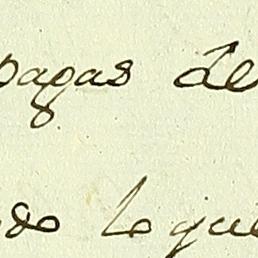 pagas de
do le que